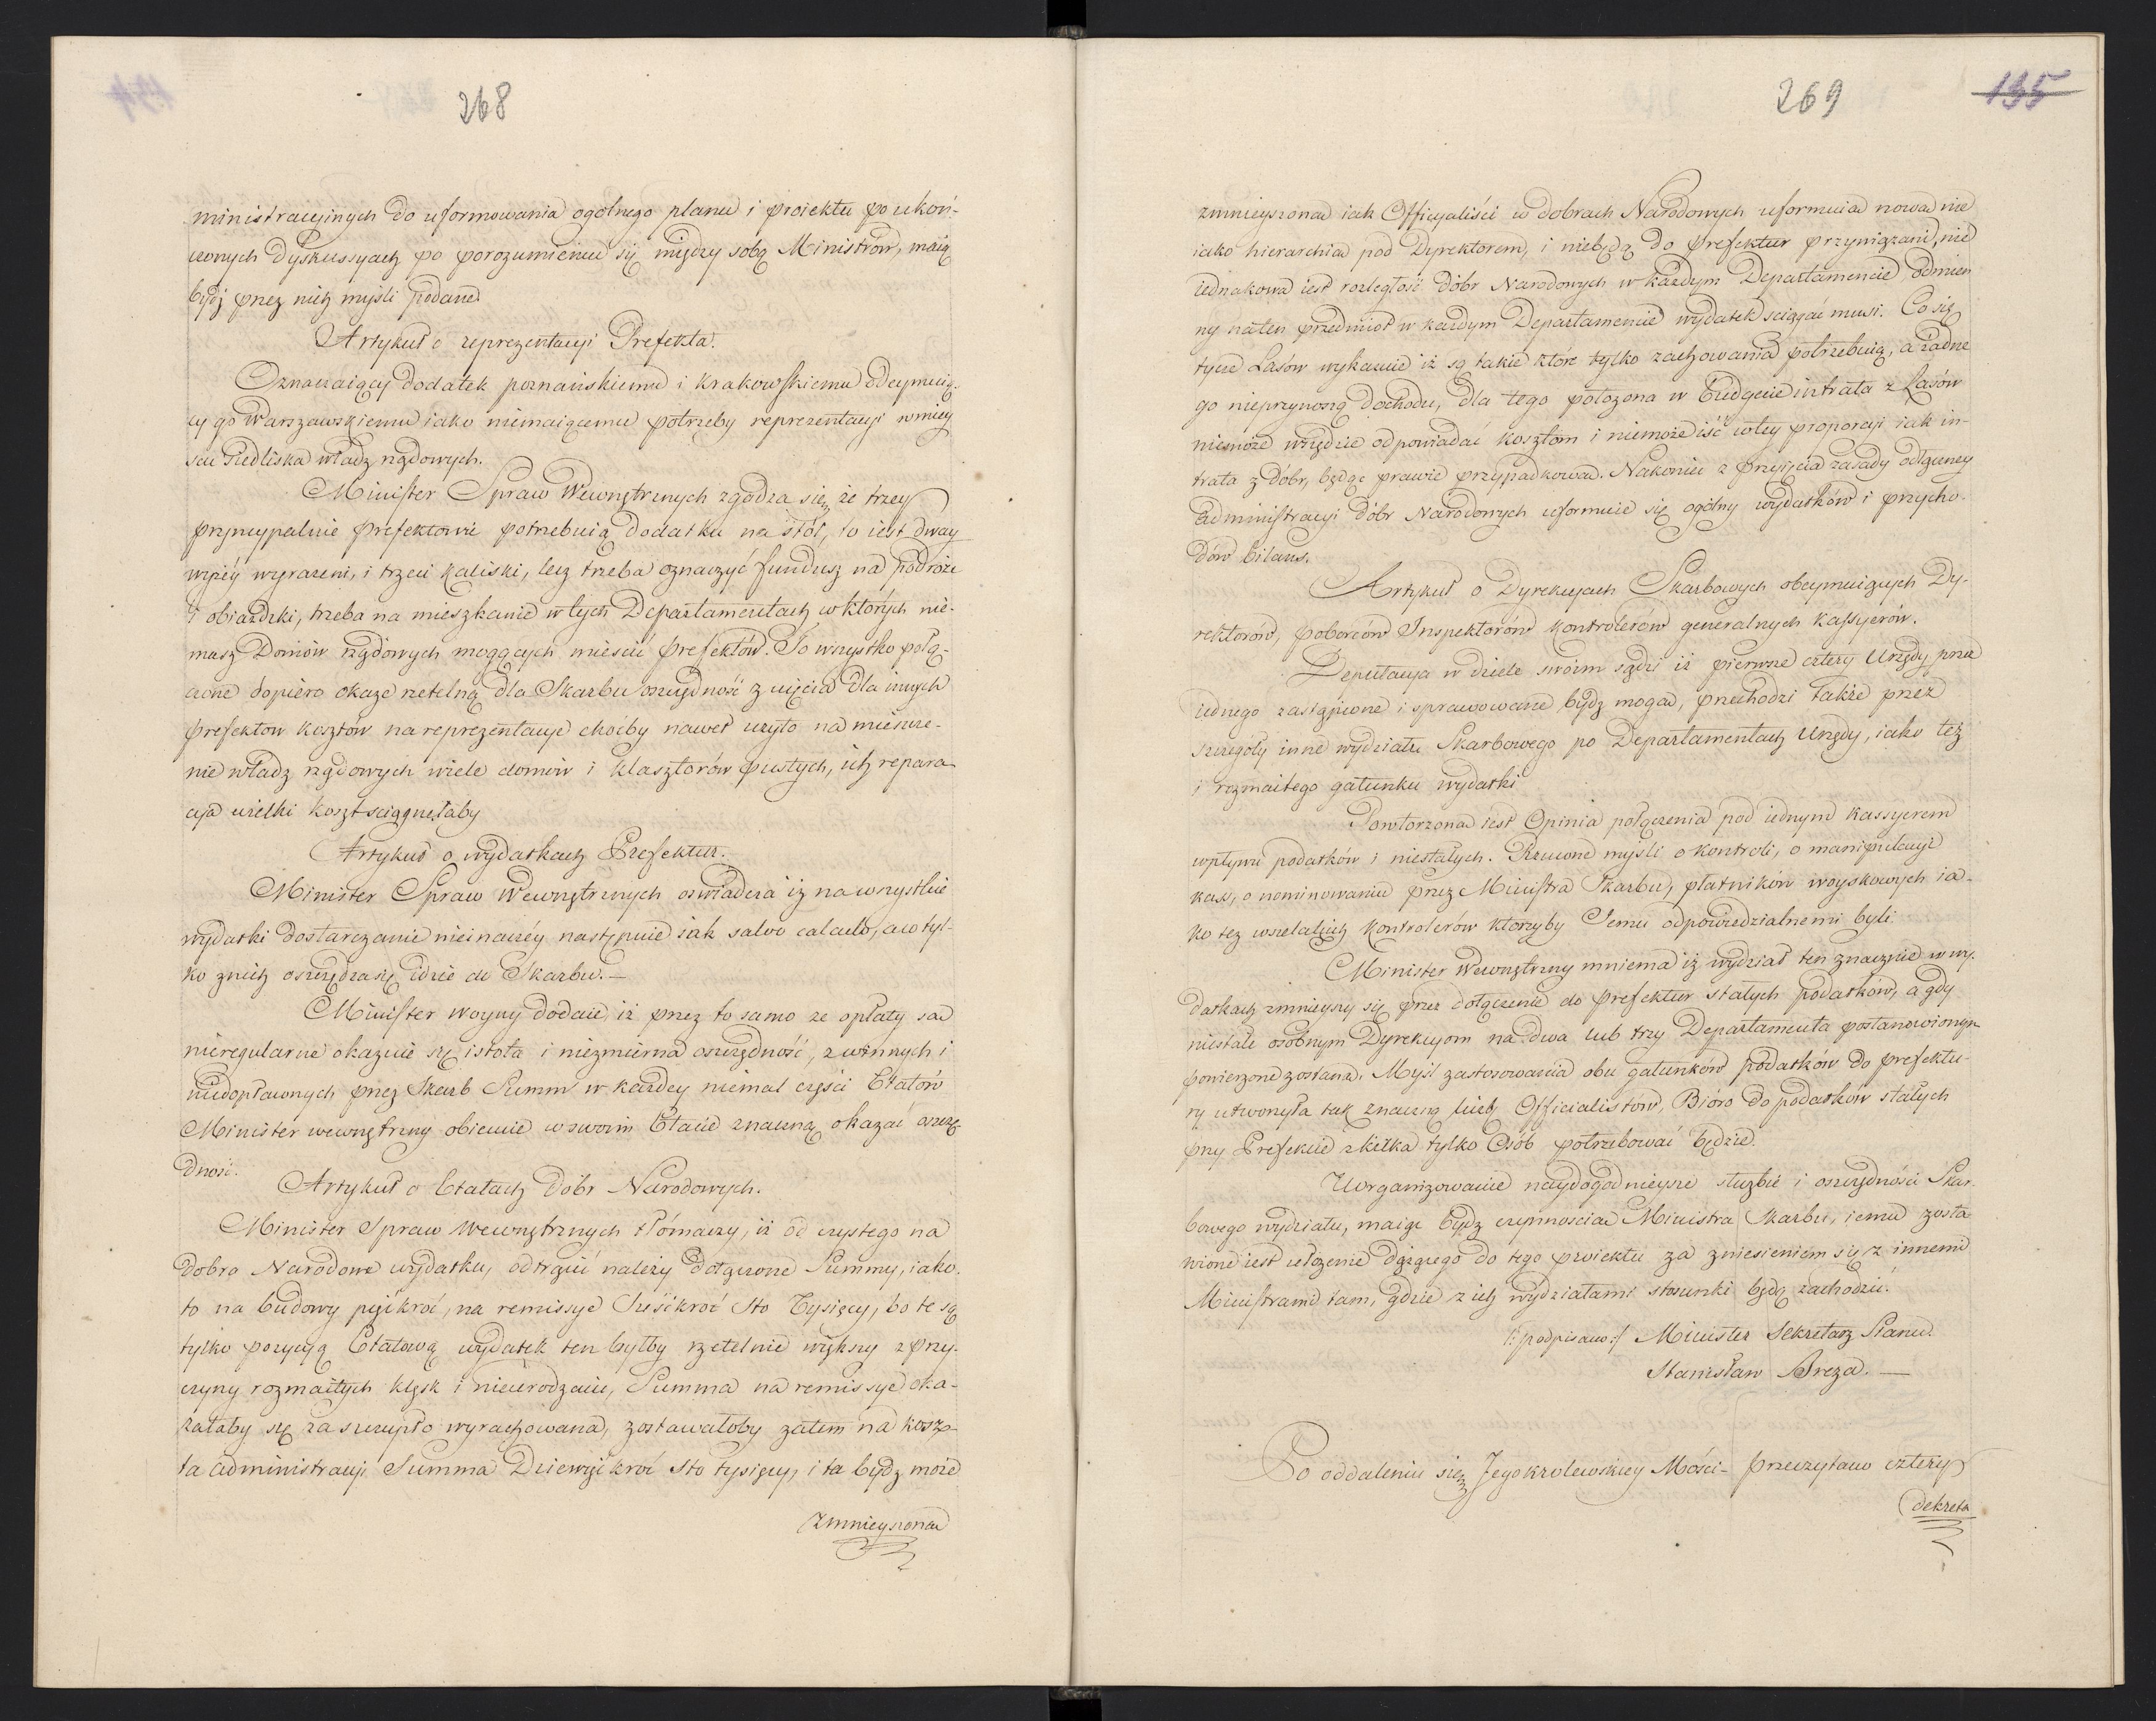 268
ministracyinych do uformowania ogolnego planu i proiektu po ukoń-
czonych Dyskussyach po porozumieniu się między sobą Ministrów, maią
bydź przez nich myśli podane.
Artykuł o reprezentacyi Prefekta.
Oznaczaiący dodatek poznańskiemu i krakowskiemu odeymuią-
cy go Warszawskiemu iako niemaiącemu potrzeby reprezentacyi w miey
scu siedliska władz rządowych.
Minister Spraw Wewnętrznych zgadza się, że trzey
pryncypalnie prefektowie potrzebuią dodatku na stół, to iest dway
wyżéy wyrażeni, i trzeci kaliski, lecz trzeba oznaczyć fundusz na podróże
i obiazdzki, trzeba na mieszkanie w tych Departamentach w których nie-
masz Domów rządowych mogących mieścić prefektów. To wszystko połą-
czone dopiero okaże rzetelną dla Skarbu oszczędność z uięcia dla innych
prefektow kosztów na reprezentacye choćby nawet użyto na mieszcze-
nie władz rządowych wiele domów i klasztorów pustych, ich repara
cya wielki koszt sciągnęłaby
Artykuł o wydatkach Prefektur.
Minister Spraw Wewnętrznych oswiadcza iż na wszystkie
wydatki dostarczanie nieinaczéy następuie iak salvo calculo, a co tyl-
ko z nich oszczędza się idzie do Skarbu.—
Minister Woyny dodaie, iż przez to samo ze opłaty są
nieregularne okazuie się istota i niezmierna oszczędność, z winnych i
niedopłaconych przez Skarb Summ w każdey niemal części Etatów
Minister wewnętrzny obiecuie w swoim Etacie znaczną okazać oszczę
dność.
Artykuł o Etatach Dóbr Narodowych.
Minister Spraw Wewnętrznych tłómaczy, iż od czystego na
dobra Narodowe wydatku, odtrącić należy dołączone Summy, iako.
to na budowy pięćkroć, na remissye Sześćkroć sto Tysięcy, bo te są
tylko pozycyą Etatową wydatek ten byłby rzetelnie większy z przy-
czyny rozmaitych klęsk i nieurodzaiu, Summa na remissye oka-
załaby się za szczupło wyrachowana, zostawałoby zatem na kosz-
ta administracyi Summa Dziewięćkroć sto tysięcy, i ta bydź może
zmnieyszona
269
135
zmnieyszona iak Officyaliści w dobrach Narodowych uformuią nową nie
iako hierarchią pod Dyrektorem, i niebędą do prefektur przywiązani, nie
iednakowa iest rozległość dóbr Narodowych w każdym Departamencie, odmien
ny na ten przedmiot w każdym Departamencie wydatek sciągać musi. Co się
tycze Lasów wykazuie iż są takie które tylko zachowania potrzebuią, a żadne
go nieprzynoszą dochodu, dla tego położona w Budgecie intrata z Lasów
niemoże wszędzie odpowiadać kosztom i niemoże iść w tey proporcyi iak in-
trata z dóbr, będąc prawie przypadkowa. Nakoniec z przyięcia zasady odłączney
administracyi dóbr Narodowych uformuie się ogólny wydatków i przycho-
dów bilans.
Artykuł o Dyrekcyach Skarbowych obeymuiących Dy-
rektorów, poborców Inspektorów kontrolerów generalnych kassyerów.
Deputacya w dziele swoim sądzi iż pierwsze cztery Urzędy przez
iednego zastąpione i sprawowane bydź mogą, przechodzi także przez
szczegóły inne wydziału Skarbowego po Departamentach Urzędy, iako też
i rozmaitego gatunku wydatki
Powtorzona iest Opinia połączenia pod iednym kassyerem
wpływu podatków i niestałych. Rzucone myśli o kontroli, o manipulacyi
kass, o nominowaniu przez Ministra Skarbu, płatników woyskowych ia-
ko też wszelakich kontrolerów którzyby Jemu odpowiedzialnemi byli
Minister Wewnętrzny mniema iż wydział ten znacznie w wy-
datkach zmnieyszy się przez dołączenie do prefektur stałych podatków, a gdy
niestałe osobnym Dyrekcyom na dwa lub trzy Departamenta postanowionym
powierzone zostaną. Myśl zastosowania obu gatunków podatków do prefektu-
ry utworzyła tak znaczną liczbę Officialistów, Bióro do podatków stałych
przy Prefekcie z kilka tylko Osób potrzebować będzie.
Uorganizowanie naydogodnieysze służbie i oszczędności Skar-
bowego wydziału, maiąc bydź czynnością Ministra Skarbu, iemu zosta
wione iest ułożenie dążącego do tego proiektu za zniesieniem się z innemi
Ministrami tam, gdzie z ich wydziałami stosunki będą zachodzić.
/:podpisano:/ Minister Sekretarz Stanu.
Stanisław Breza.—
Po oddaleniu się Jego krolewskiey Mości- przeczytano cztery
dekreta